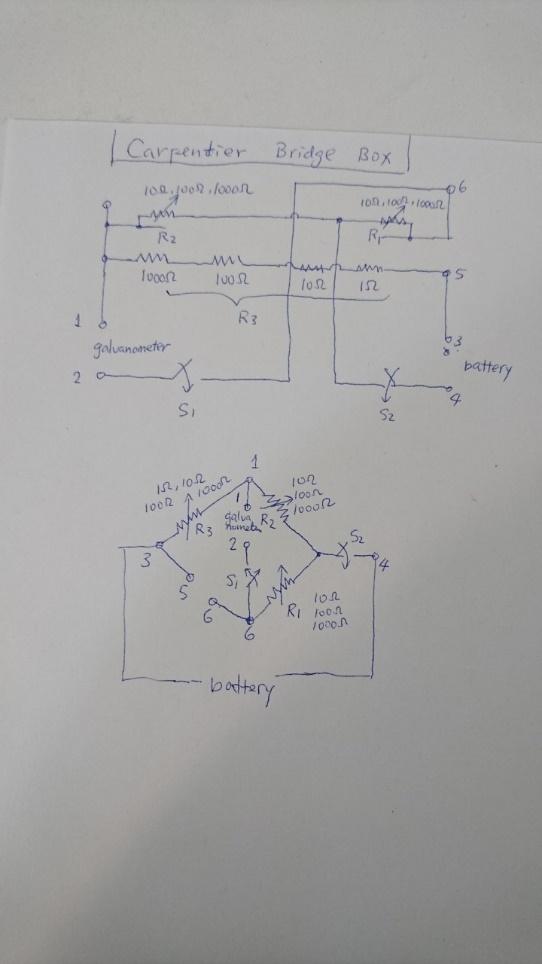 Carpentier Bridge Box
10Ω, 100Ω, 1000Ω
10Ω, 100Ω, 1000Ω
6
R2
R1
5
1000Ω
100Ω
10Ω
1Ω
R3
1
3
galvanometer
battery
2
4
S1
S2
1
1Ω, 10Ω
100Ω 1000Ω
10Ω
100Ω
1000Ω
1
galva
nometer
R2
R3
S2
2
3
4
5
S1
6
R1
10Ω
100Ω
1000Ω
6
battery